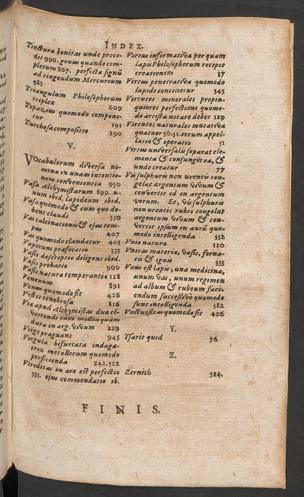 INDEX.
Tinctura bonitas unde proce-
dit 990. genus quando com-
pletum 867. perfecta signũ
ad tingendum Mercurium
983
Triangulum Philosophorum
triplex 609
Topazius quomodo compone-
tur 191
Turchusa compositio 190
V.
Vocabulorum diversa no-
mina in unam intentio-
nem convenientia 950
Vasa Alchymistarum 899. u-
num ibid. lapideum ibid.
Vasa quomodo & cum quo de-
bent claudi 350
Vas calcinationis & ejus tem-
pus 407
Vas quomodo claudatur 403
Vaporum praefocatio 333
Vasis descriptio deligens ibid.
Vasis probatio 900
Vasis natura temperantis 128
Venenum 891
Venus 426
Vestis tenebrosa 816
Via apud Alchymistas dua cõ-
dura in arg. vivum 229
Virgo pragnans 945
Vergula bifurcata indaga-
trix metallorum quomodo
perficienda 242.328
Viriditas in aere est perfectio
525. ejus commendatio ib.
Virtus informativa per quam
lapis Philosophorum recipit
creationem 37
Virtus penetrativa quomodo
lapidis conscitur 345
Virtutes minerales propin-
quiores perfectionis quomo-
do artista notare debet 129
Virtutes naturales mutativa
quatuor 50.51. eorum appel-
latio & operatio 51
Virtus universalis separat ele-
menta & conjungit ea, &
unde creatur 77
Vis sulphuris non urentis con-
gelat argentum vivum &
convertit id in argentum
verum. Et, vis sulphuris
non urentis rubei congelat
argentum vivum & con-
vertit ipsum in aurũ quo-
modo intelligenda 552
Unio natura 120
Unica materia, vasis, forna-
cis & ignis 355
Unus est lapis, una medicina,
unum vas, unum regimen
ad album & rubeum faci-
endum successivè quomodo
sunt intelligenda 582
Unctuositas quomodo fit 426
Y.
Ysarit quid 76
Z.
Zernich 324.
FINIS.